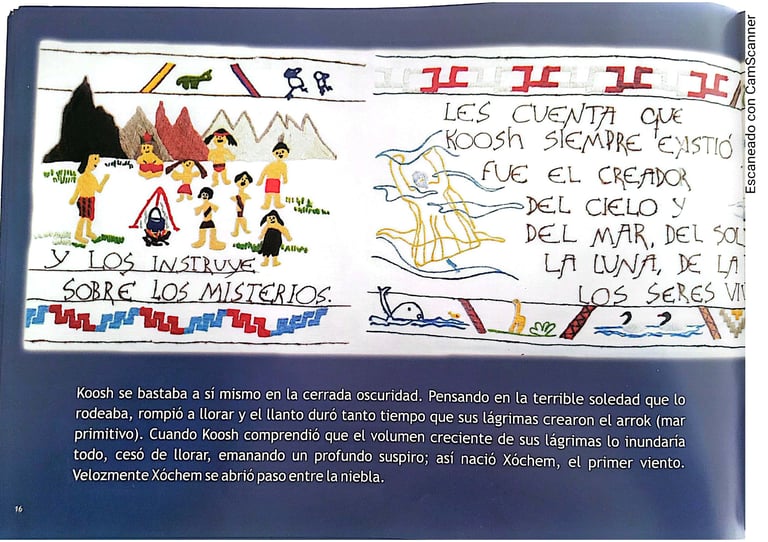 Y LOS INSTRUYE
SOBRE LOS MISTERIOS.
LES CUENTA QUE
KOOSH SIEMPRE EXISTIÓ
FUE EL CREADOR
DEL CIELO Y
DEL MAR, DEL SOL
LA LUNA, DE LA
LOS SERES VIV
Koosh se bastaba a sí mismo en la cerrada oscuridad. Pensando en la terrible soledad que lo
rodeaba, rompió a llorar y el llanto duró tanto tiempo que sus lágrimas crearon el arrok (mar
primitivo). Cuando Koosh comprendió que el volumen creciente de sus lágrimas lo inundaría
todo, cesó de llorar, emanando un profundo suspiro; así nació Xóchem, el primer viento.
Velozmente Xóchem se abrió paso entre la niebla.
16
Escaneado con CamScanner